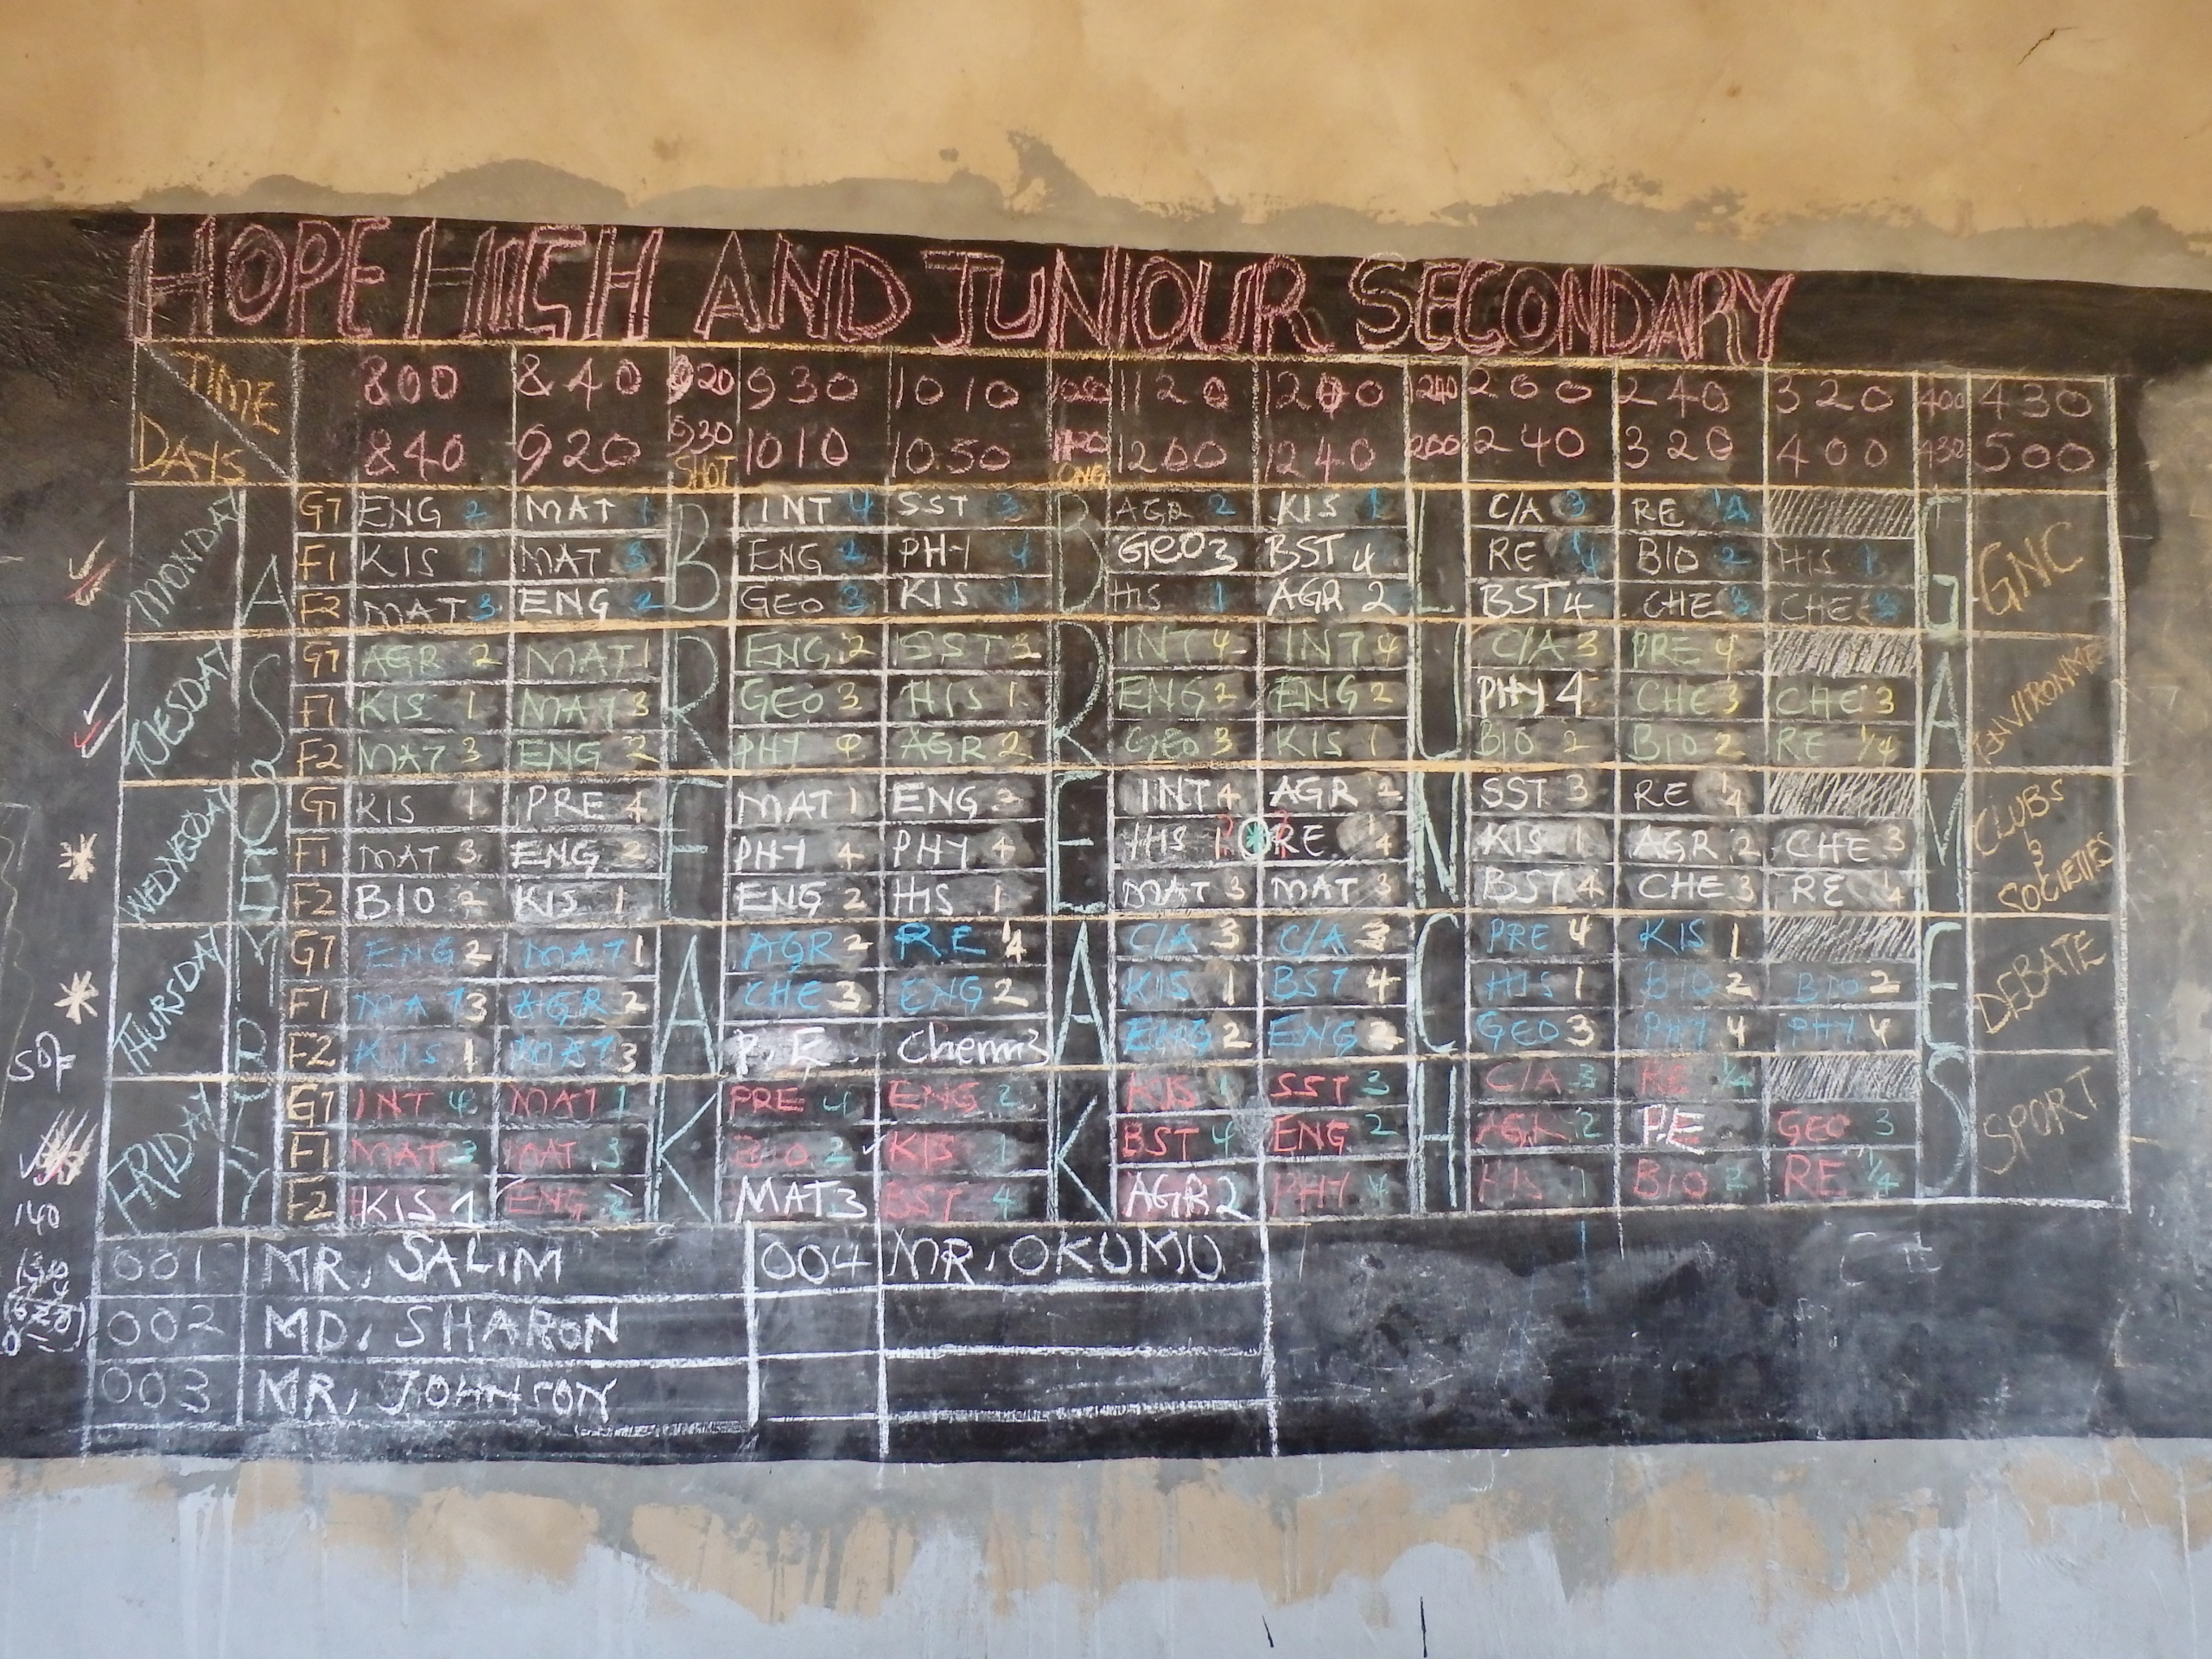 HOPE HIGH AND JUNIOUR SECONDARY
TIME 800 840 920 930 1010 1120 1200 1240 200 240 320 400 430
DAYS 840 920 930 1010 1050 1120 1200 1240 200 240 320 400 430 500
SHOT ONG
MONDAY G7 ENG 2 MAT 1 INT 4 SST 3 AGR 2 KIS 1 C/A 3 RE 1/4 GNC
F1 KIS 1 MAT 3 ENG 2 PHY 4 GEO 3 BST 4 RE 1/4 BIO 2 HIS 1
F2 MAT 3 ENG 2 GEO 3 KIS 1 HIS 1 AGR 2 BST 4 CHE 3 CHE 3
TUESDAY G7 AGR 2 MAT 1 ENG 2 SST 3 INT 4 INT 4 C/A 3 PRE 4 ENVIRONME
F1 KIS 1 MAT 3 GEO 3 HIS 1 ENG 2 ENG 2 PHY 4 CHE 3 CHE 3
F2 MAT 3 ENG 2 PHY 4 AGR 2 GEO 3 KIS 1 BIO 2 BIO 2 RE 1/4
WEDNESDAY G7 KIS 1 PRE 4 MAT 1 ENG 2 INT 4 AGR 2 SST 3 RE 1/4 CLUBS
F1 MAT 3 ENG 2 PHY 4 PHY 4 HIS 1 RE 1/4 KIS 1 AGR 2 CHE 3 SOCIETIES
F2 BIO 2 KIS 1 ENG 2 HIS 1 MAT 3 MAT 3 BST 4 CHE 3 RE 1/4
THURSDAY G7 ENG 2 MAT 1 AGR 2 RE 1/4 C/A 3 C/A 3 PRE 4 KIS 1 DEBATE
F1 MAT 3 AGR 2 CHE 3 ENG 2 KIS 1 BST 4 HIS 1 BIO 2 BIO 2
F2 KIS 1 MAT 3 P.E Chem 3 ENG 2 ENG 2 GEO 3 PHY 4 PHY 4
FRIDAY G7 INT 4 MAT 1 PRE 4 ENG 2 KIS 1 SST 3 C/A 3 RE 1/4 SPORT
F1 MAT 3 MAT 3 BIO 2 KIS 1 BST 4 ENG 2 AGR 2 P.E GEO 3
F2 KIS 1 ENG 2 MAT 3 BST 4 AGR 2 PHY 4 HIS 1 BIO 2 RE 1/4
ASSEMBRLY
BREAK
BREAK
LUNCH
GAMES
001 MR. SALIM 004 MR. OKUMU
002 MD. SHARON
003 MR. JOHNSON
140